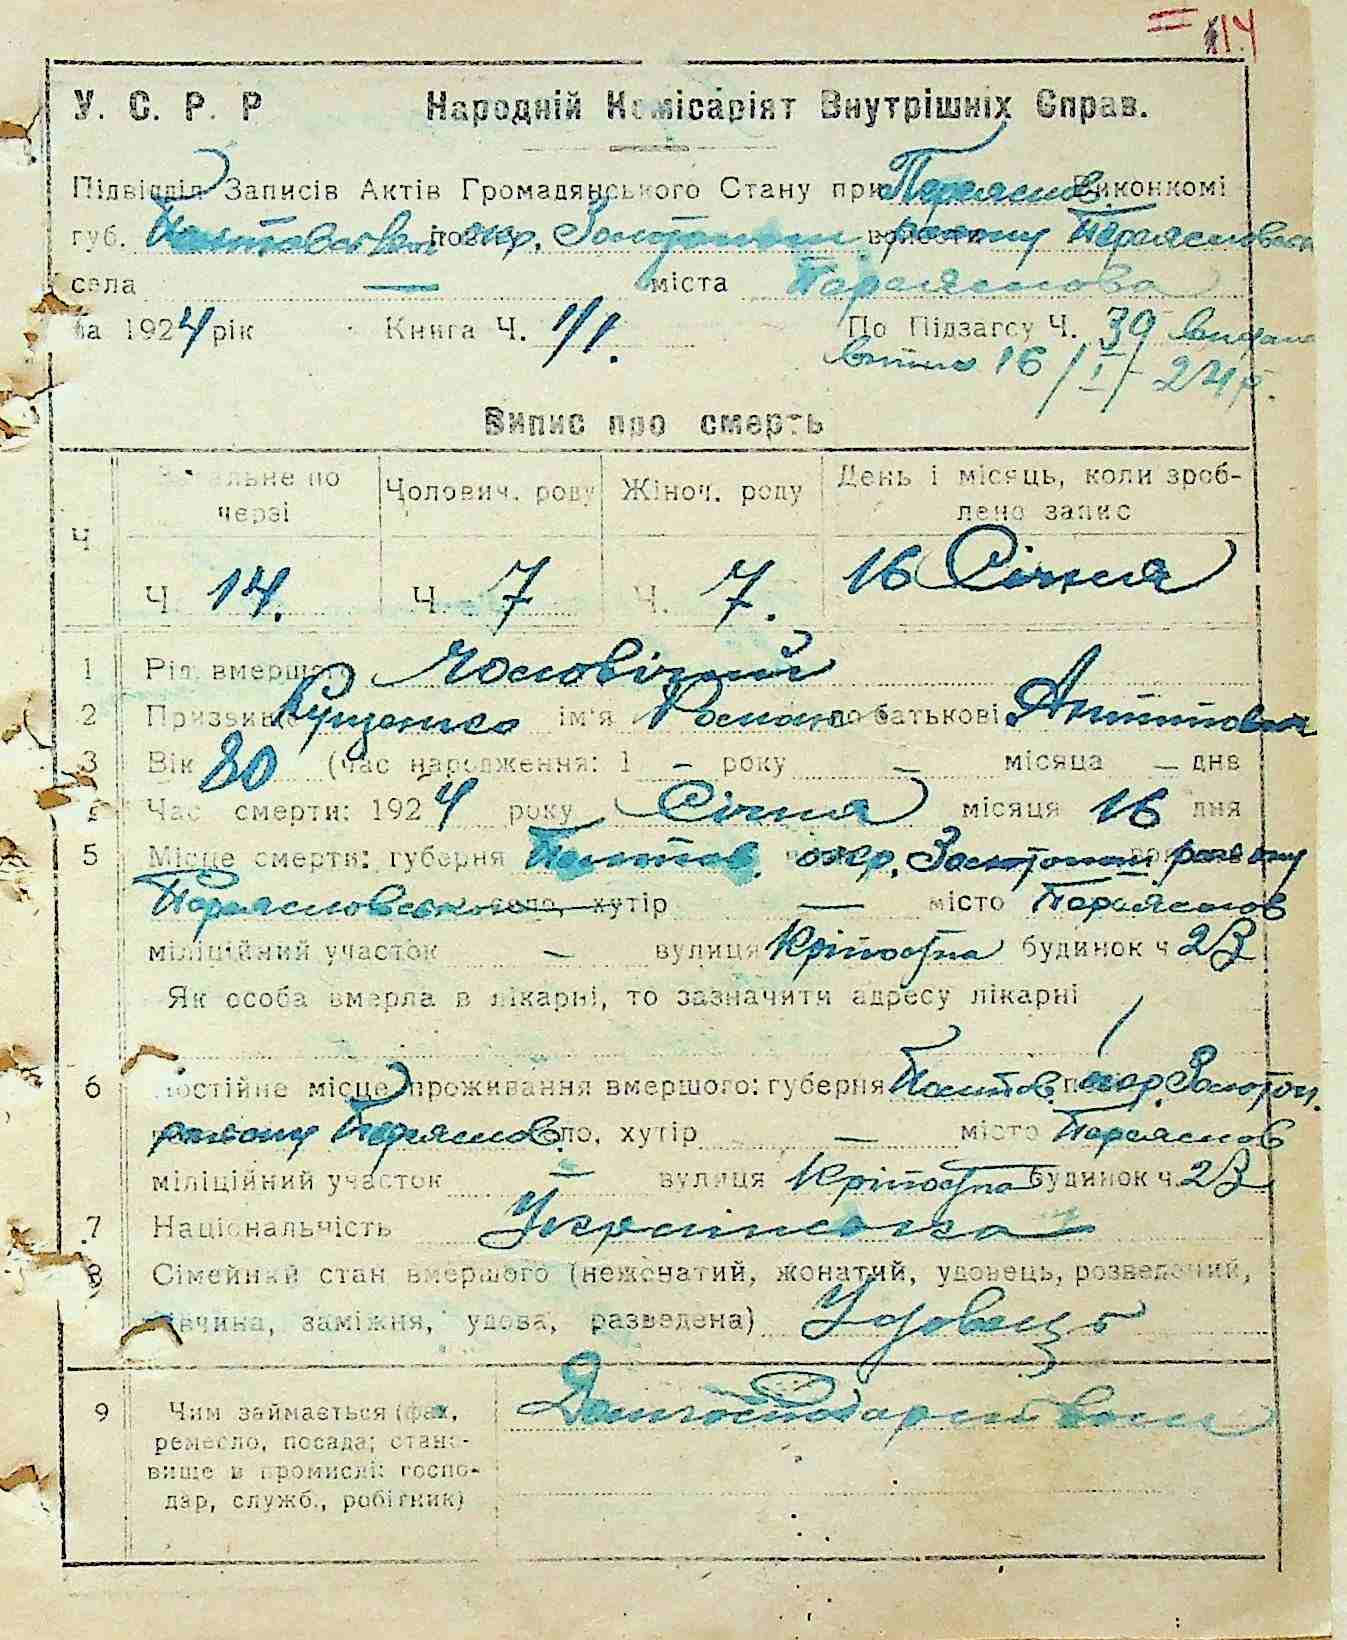 14
У. С. Р. Р Народній Комісаріят Внутрішніх Справ.
Підвідділ Записів Актів Громадянського Стану при Переяслов. Виконкомі
губ. Полтавській окр. Золотоніській району Переясловськ
села — міста Переяслова
за 1924 рік Книга Ч. 1/1. По Підзагсу Ч. 39 видано
витяг 16/I-24р.
Випис про смерть
Ч Загальне по черзі Чолович. роду Жіноч. роду День і місяць, коли зроблено запис
Ч 14. Ч. 7 Ч. 7. 16 Січня
1 Рід вмерш Чоловічий
2 Призвище Луценко ім'я Роман по батькові Антипович
3 Вік 80 (час народження: 1 – року – місяца – дня
4 Час смерти: 1924 року Січня місяця 16 дня
5 Місце смерти: губерня Полтав. окр. Золотоніській району
Переясловського село, хутір — місто Переяслов
міліційний участок – вулиця Кріпостна будинок ч 23
Як особа вмерла в лікарні, то зазначити адресу лікарні
6 Постійне місце проживання вмершого: губерня Полтав. окр. Золотон.
району Переяслов. село, хутір — місто Переяслов
міліційний участок – вулиця Кріпостна будинок ч. 23
7 Національчість Українська
8 Сімейний стан вмершого (нежонатий, жонатий, удовець, розведений,
дівчина, заміжня, удова, разведена) Удовець
9 Чим займається (фах, Домгосподарством
ремесло, посада; стано-
вище в промислі: госпо-
дар, служб., робітник)